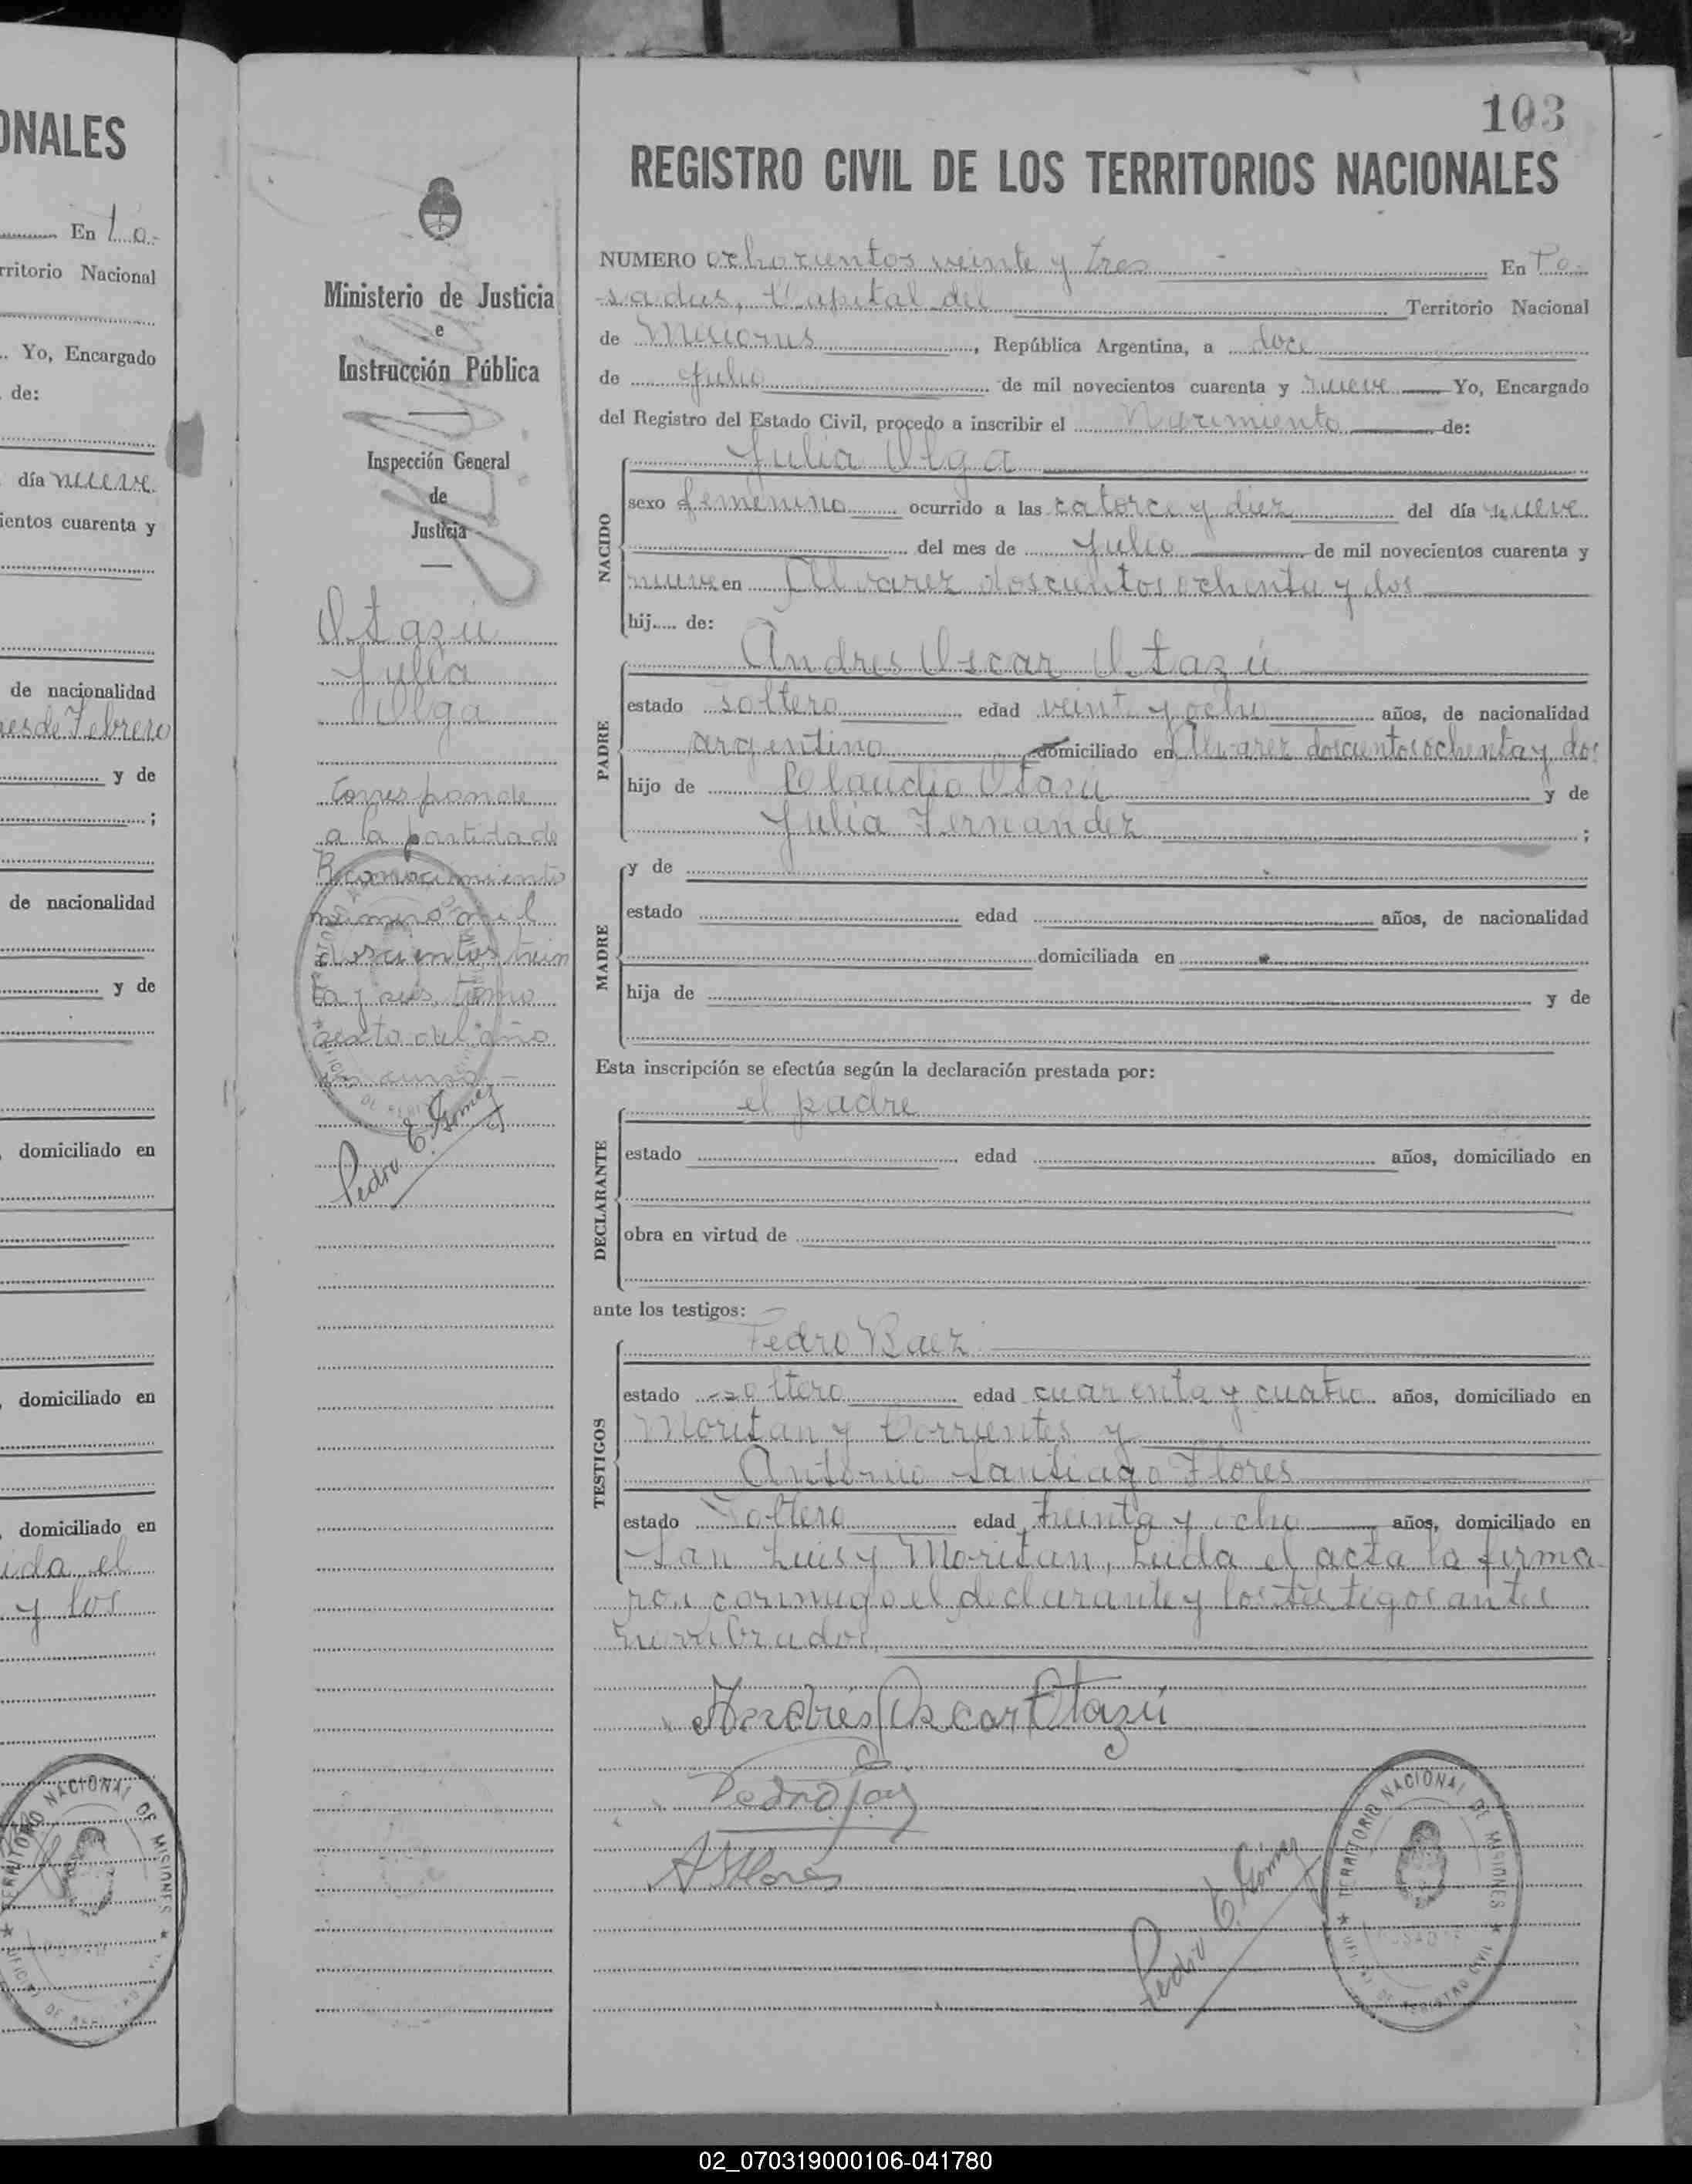 ONALES
En Po-
rritorio Nacional
Yo, Encargado
de:
día nueve
ientos cuarenta y
de nacionalidad
mes de Febrero
y de
;
de nacionalidad
y de
domiciliado en
domiciliado en
domiciliado en
ida el
y los
TERRITORIO NACIONAL DE MISIONES
Ministerio de Justicia
e
Instrucción Pública
Inspección General
de
Justicia
Otazú
Julia
Olga
Corresponde
a la partida de
Reconocimiento
número mil
doscientos trein
ta y seis, tomo
sexto del año
en curso.-
Pedro E. Gomez
103
REGISTRO CIVIL DE LOS TERRITORIOS NACIONALES
NUMERO ochocientos veinte y tres En Po-
sadas, Capital del Territorio Nacional
de Misiones, República Argentina, a doce
de Julio de mil novecientos cuarenta y nueve Yo, Encargado
del Registro del Estado Civil, procedo a inscribir el Nacimiento de:
NACIDO
Julia Olga
sexo femenino ocurrido a las catorce y diez del día nueve
del mes de Julio de mil novecientos cuarenta y
nueve en Alvarez doscientos ochenta y dos
hij..... de:
PADRE
Andres Oscar Otazú
estado soltero edad veinte y ocho años, de nacionalidad
argentino domiciliado en Alvarez doscientos ochenta y dos
hijo de Claudio Otazú y de
Julia Fernandez ;
MADRE
y de
estado edad años, de nacionalidad
domiciliada en
hija de y de
Esta inscripción se efectúa según la declaración prestada por:
DECLARANTE
el padre
estado edad años, domiciliado en
obra en virtud de
ante los testigos:
TESTIGOS
Pedro Baez
estado soltero edad cuarenta y cuatro años, domiciliado en
Moritan y Corrientes y
Antonio Santiago Flores
estado soltero edad treinta y ocho años, domiciliado en
San Luis y Moritan, Leida el acta la firma-
ron conmigo el declarante y los testigos antes
nombrados.
Andrés Oscar Otazú
Pedro
A S Flores
Pedro E. Gómez
TERRITORIO NACIONAL DE MISIONES
OFICINA DE REGISTRO CIVIL
POSADAS
02_070319000106-041780